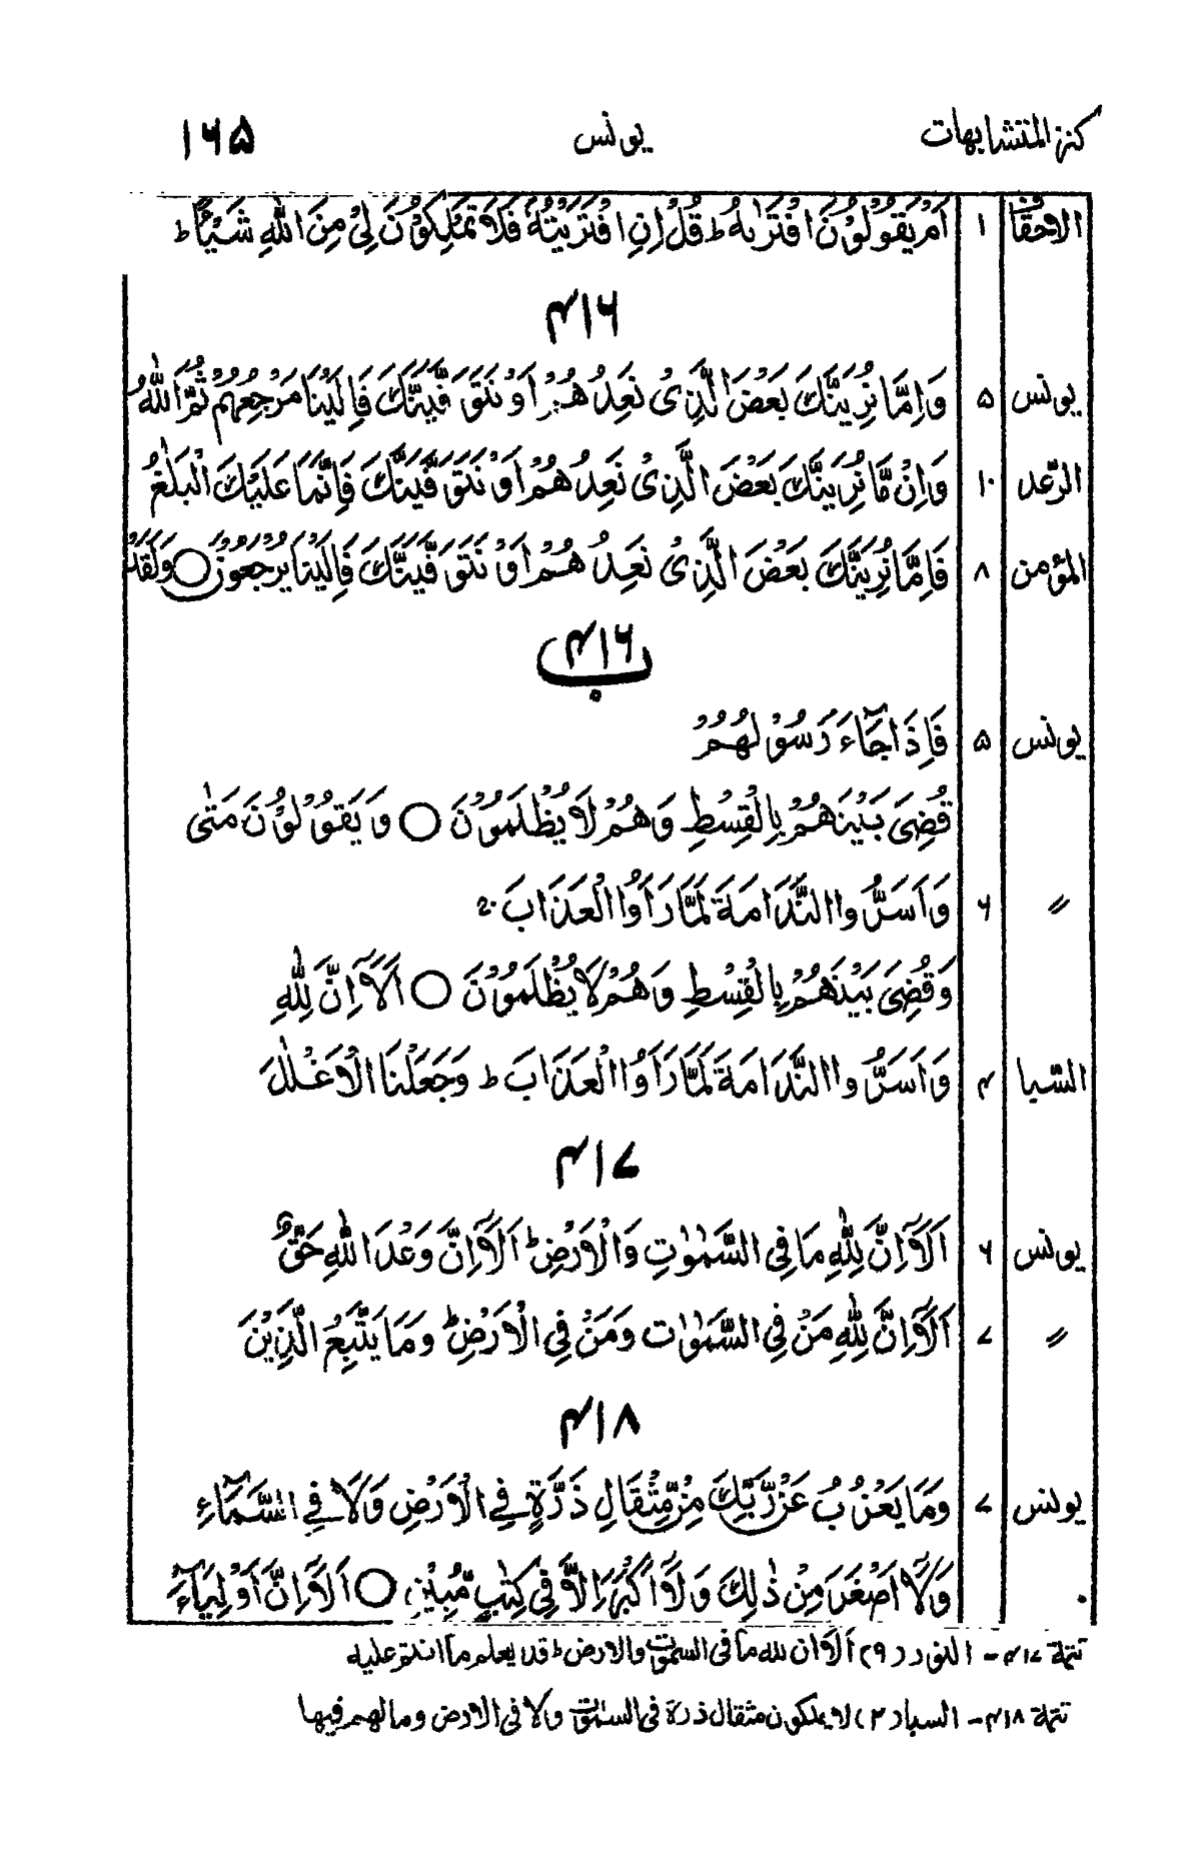 كنز المتشابهات يونس ۱۶۵
الاحقا ۱ اَمْ يَقُوْلُوْنَ افْتَرٰىهُ ط قُلْ اِنِ افْتَرَيْتُهٗ فَلَا تَمْلِكُوْنَ لِیْ مِنَ اللّٰهِ شَيْـًٔا ط
۴۱۶
يونس ۵ وَاِمَّا نُرِيَنَّكَ بَعْضَ الَّذِیْ نَعِدُهُمْ اَوْ نَتَوَفَّيَنَّكَ فَاِلَيْنَا مَرْجِعُهُمْ ثُمَّ اللّٰهُ
الرّعد ۱۰ وَاِنْ مَّا نُرِيَنَّكَ بَعْضَ الَّذِیْ نَعِدُهُمْ اَوْ نَتَوَفَّيَنَّكَ فَاِنَّمَا عَلَيْكَ الْبَلٰغُ
المؤمن ۸ فَاِمَّا نُرِيَنَّكَ بَعْضَ الَّذِیْ نَعِدُهُمْ اَوْ نَتَوَفَّيَنَّكَ فَاِلَيْنَا يُرْجَعُوْنَ ○ وَلَقَدْ
۴۱۶ ب
يونس ۵ فَاِذَا جَآءَ رَسُوْلُهُمْ
قُضِیَ بَيْنَهُمْ بِالْقِسْطِ وَهُمْ لَا يُظْلَمُوْنَ ○ وَيَقُوْلُوْنَ مَتٰی
〃 ۶ وَاَسَرُّوا النَّدَامَةَ لَمَّا رَاَوُا الْعَذَابَ ج
وَقُضِیَ بَيْنَهُمْ بِالْقِسْطِ وَهُمْ لَا يُظْلَمُوْنَ ○ اَلَآ اِنَّ لِلّٰهِ
السّبا ۴ وَاَسَرُّوا النَّدَامَةَ لَمَّا رَاَوُا الْعَذَابَ ط وَجَعَلْنَا الْاَغْلٰلَ
۴۱۷
يونس ۶ اَلَآ اِنَّ لِلّٰهِ مَا فِی السَّمٰوٰتِ وَالْاَرْضِ ط اَلَآ اِنَّ وَعْدَ اللّٰهِ حَقٌّ
〃 ۷ اَلَآ اِنَّ لِلّٰهِ مَنْ فِی السَّمٰوٰت وَمَنْ فِی الْاَرْضِ ط وَمَا يَتَّبِعُ الَّذِيْنَ
۴۱۸
يونس ۷ وَمَا يَعْزُبُ عَنْ رَّبِّكَ مِنْ مِّثْقَالِ ذَرَّةٍ فِی الْاَرْضِ وَلَا فِی السَّمَآءِ
وَلَآ اَصْغَرَ مِنْ ذٰلِكَ وَلَآ اَكْبَرَ اِلَّا فِیْ كِتٰبٍ مُّبِيْنٍ ○ اَلَآ اِنَّ اَوْلِيَآءَ
تتمة ۴۱۷ـ النور (۹) اَلَآ ان لله ما فی السمٰوٰت والارض ط قد يعلم مآ انتم عليه
تتمة ۴۱۸ـ السبا (۳) لا يملكون مثقال ذرة فی السمٰوٰت ولا فی الارض وما لهم فيها